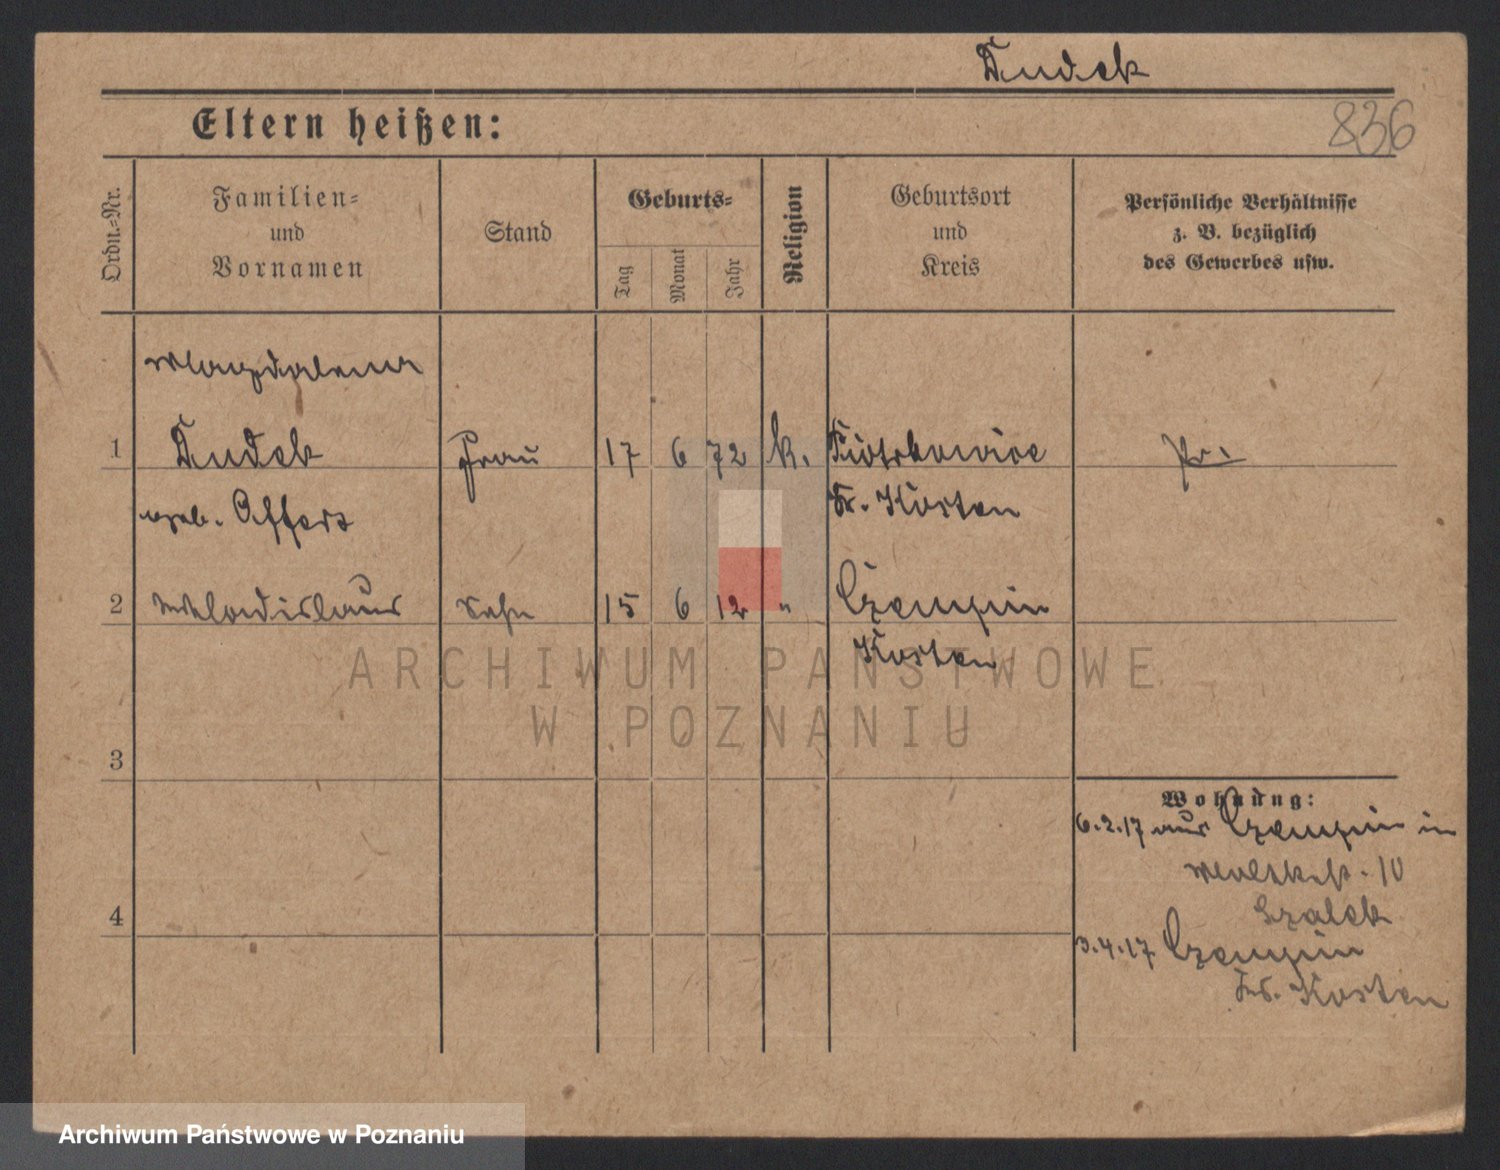 Dudek
836
Eltern heißen:
Ordn.-Nr.
Familien-
und
Vornamen
Stand
Geburts-
Tag
Monat
Jahr
Religion
Geburtsort
und
Kreis
Persönliche Verhältnisse
z. B. bezüglich
des Gewerbes usw.
Magdalena
1 Dudek Frau 17 6 72 k. Piotrkowice Pr.
geb. Kr. Kosten
2 Wladislaus Sohn 15 6 12 " Czempin
Kosten
ARCHIWUM PAŃSTWOWE
W POZNANIU
3
Wohnung:
6.2.17 aus Czempin in
10
Szalek
4
3.4.17 Czempin
Kr. Kosten
Archiwum Państwowe w Poznaniu